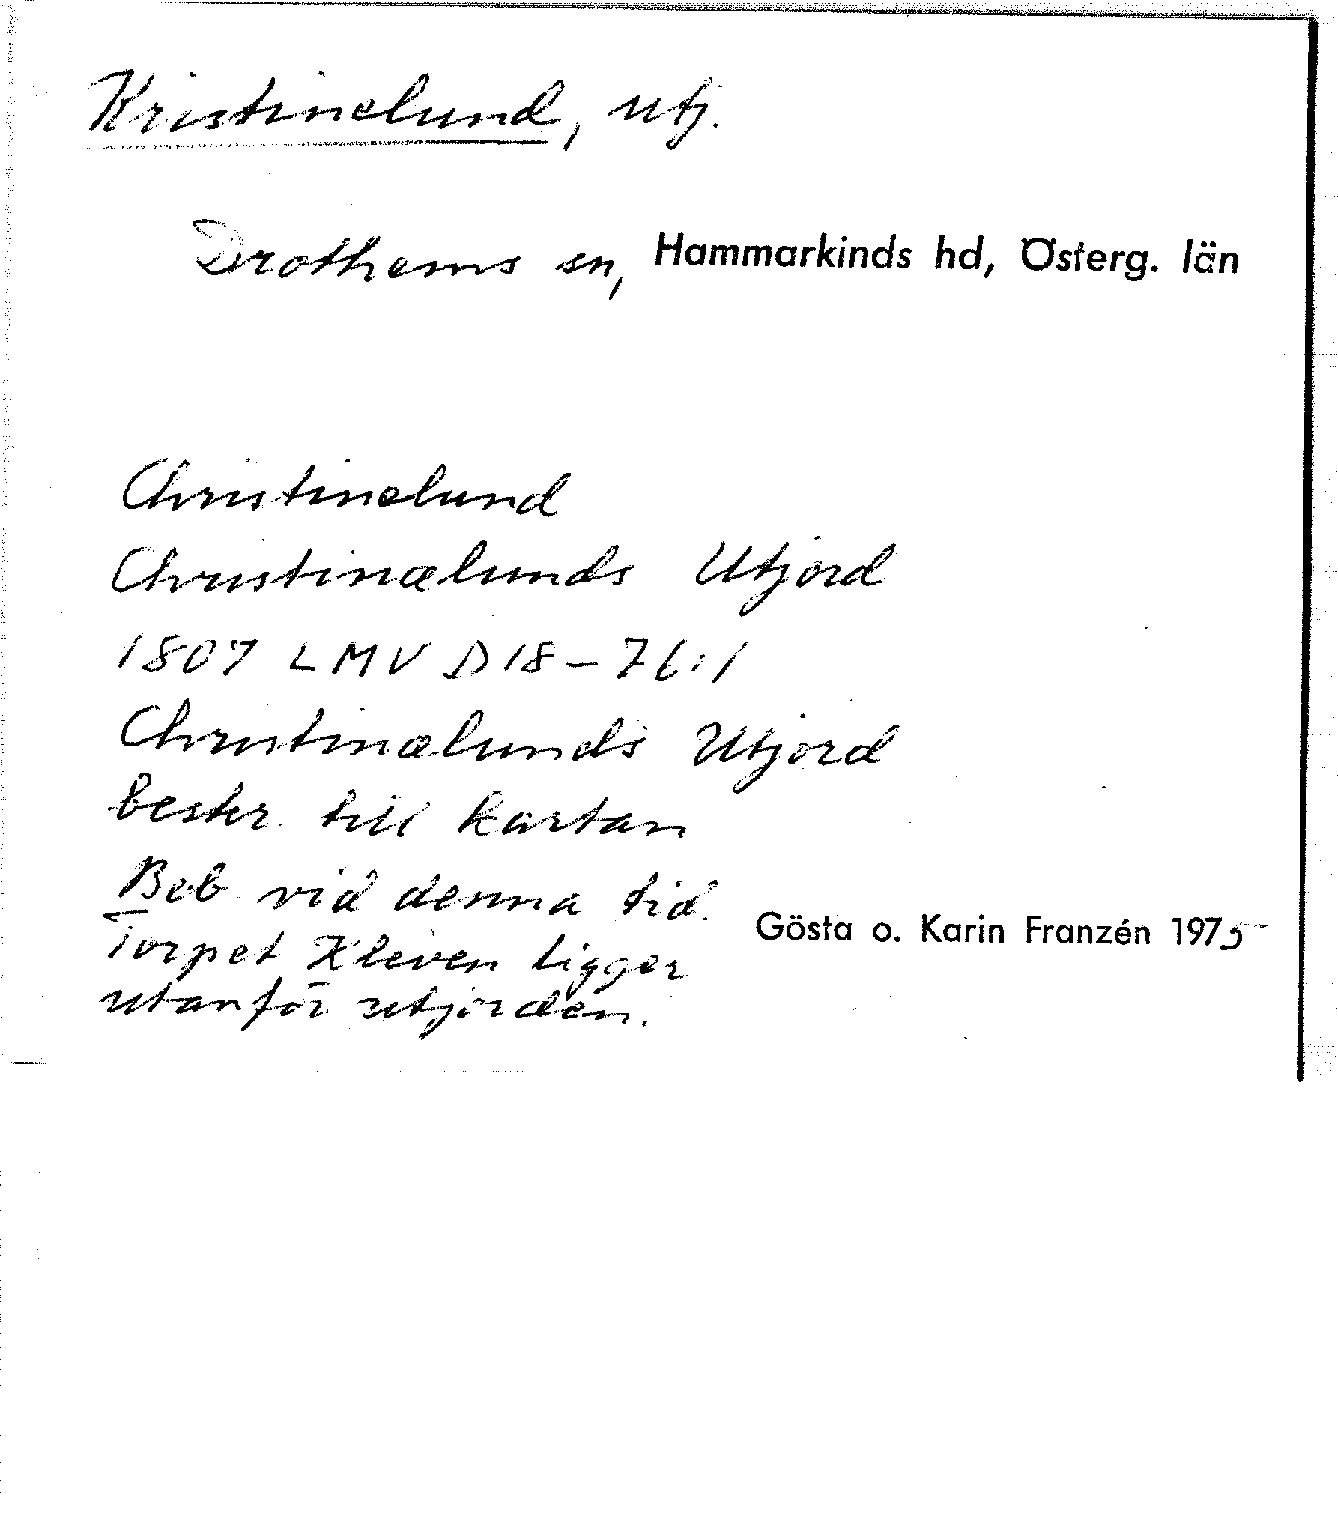 Kristinelund, utj.
Drothems sn, Hammarkinds hd, Österg. län
Christinelund
Christinælunds Utjord
1807 LMV D18-76:1
Christinælunds Utjord
beskr. till kartan
Beb vid denna tid.
Torpet Kleven ligger
utanför utjorden.
Gösta o. Karin Franzén 1975